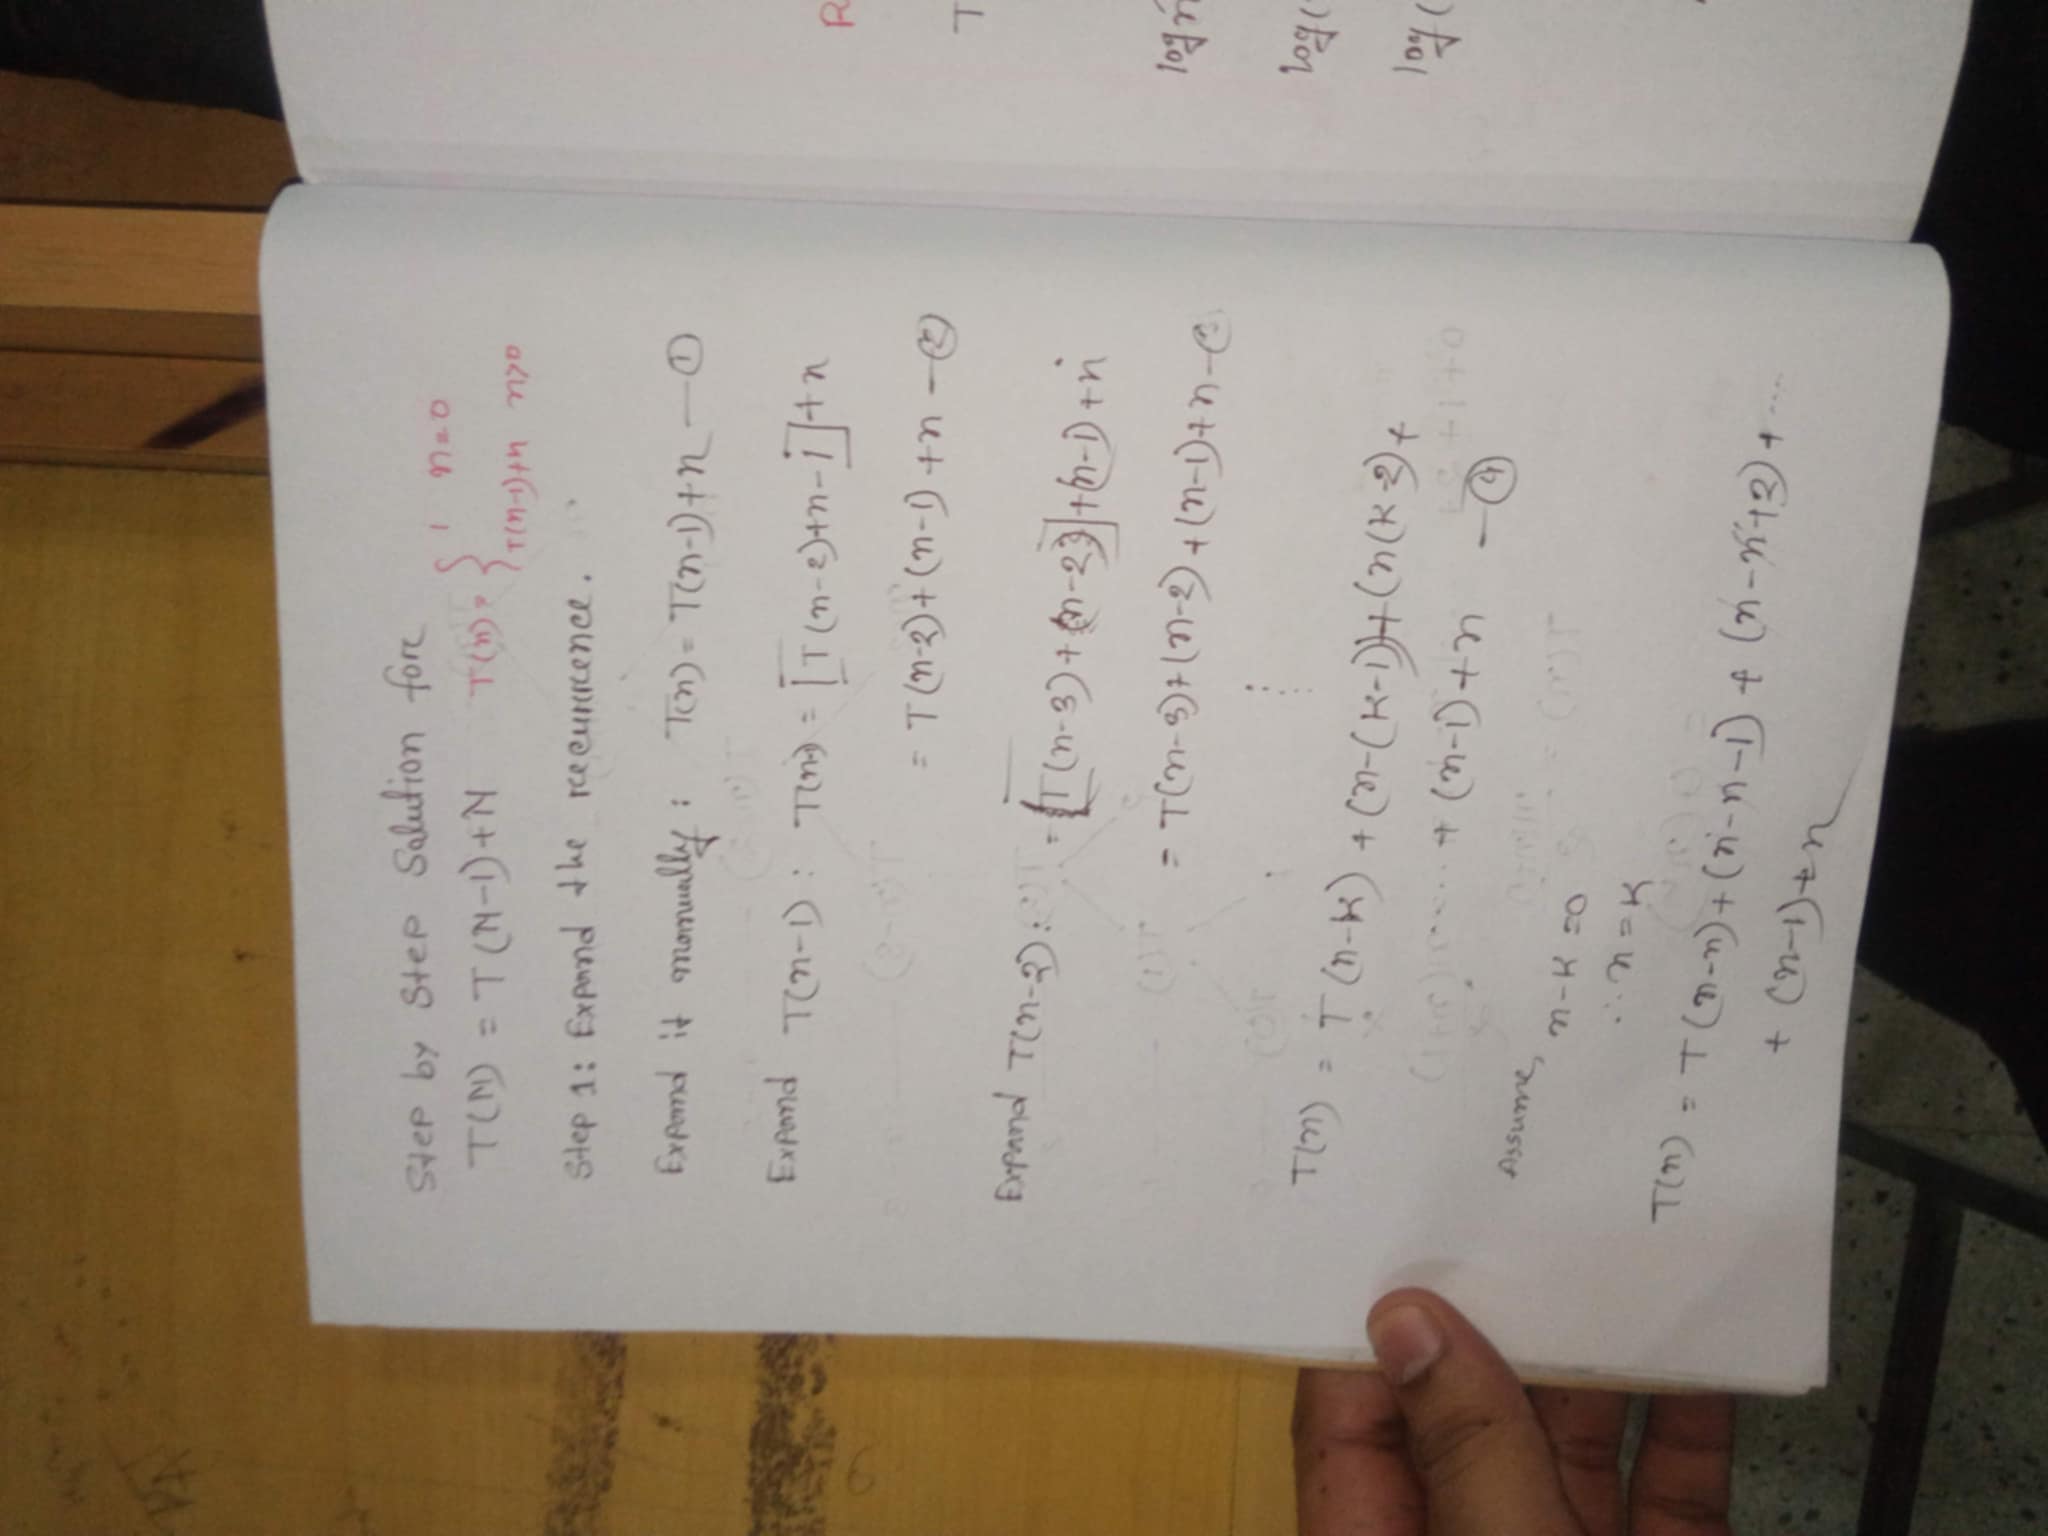 Step by Step Solution fore
T(N) = T(N-1)+N T(n) = { 1 n=0
T(n-1)+n n>0
Step 1: Expand the recurrence.
Expand it manually : T(n) = T(n-1)+n —①
Expand T(n-1) : T(n) = [T(n-2)+n-1]+n
= T(n-2)+(n-1)+n —②
Expand T(n-2): = [T(n-3)+(n-2)]+(n-1)+n
= T(n-3)+(n-2)+(n-1)+n —③
T(n) = T(n-k)+(n-(k-1))+(n(k-2)+
..... + (n-1)+n —④
Assume,
n-k=0
∴ n=k
T(n) = T(n-n)+(n-n-1)+(n-n+2)+....
+ (n-1)+n
R
T
log n
log(
log(